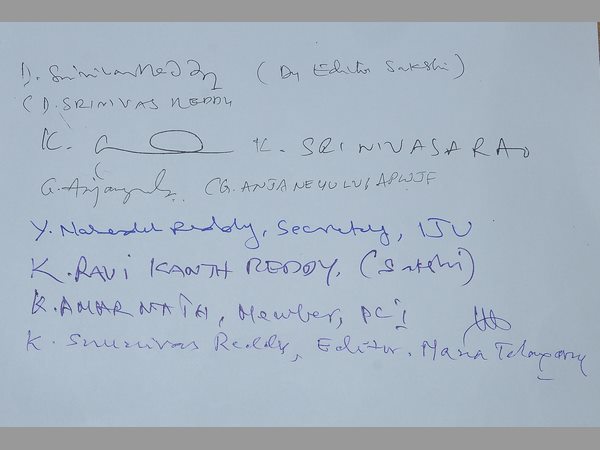 D. Srinivas Reddy (Dy Editor Sakshi)
(D. SRINIVAS REDDY
K. K. SRINIVASARAO
G. Anjaneyulu (G. ANJANEYULU, APWJF
Y. Narender Reddy, Secretary, IJU
K. RAVI KANTH REDDY. (Sakshi)
K. AMARNATH, Member, PCI
K. Srinivas Reddy, Editor. Mana Telangana